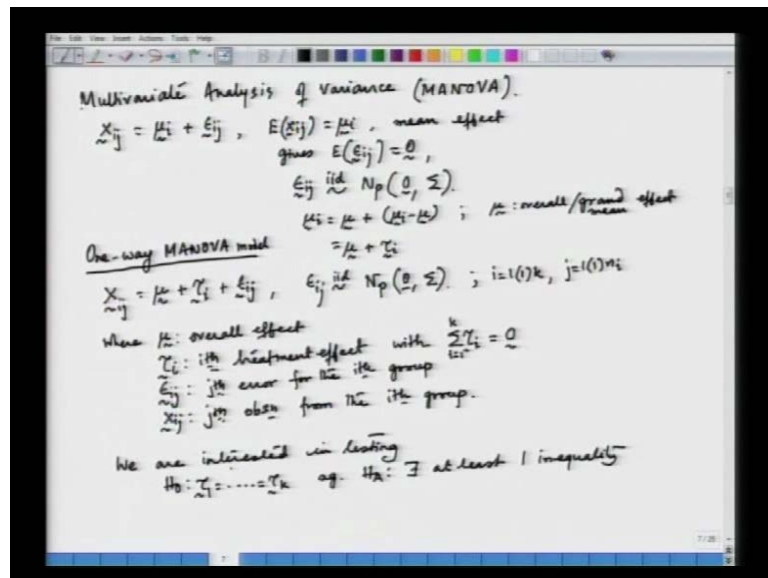 File Edit View Insert Actions Tools Help
Multivariate Analysis of Variance (MANOVA).
X_ij = μ_i + ε_ij , E(X_ij) = μ_i , mean effect
gives E(ε_ij) = 0 ,
ε_ij iid ~ N_p(0, Σ).
μ_i = μ + (μ_i - μ) ; μ : overall/grand effect
mean
= μ + τ_i
One-way MANOVA model
X_ij = μ + τ_i + ε_ij , ε_ij iid ~ N_p(0, Σ). ; i=1(1)k, j=1(1)n_i
where μ : overall effect
τ_i : ith treatment effect with Σ_{i=1}^k τ_i = 0
ε_ij : jth error for the ith group
X_ij : jth obsn from the ith group.
We are interested in testing
H_0 : τ_1 = ..... = τ_k ag. H_A : ∃ at least 1 inequality
7/25
7